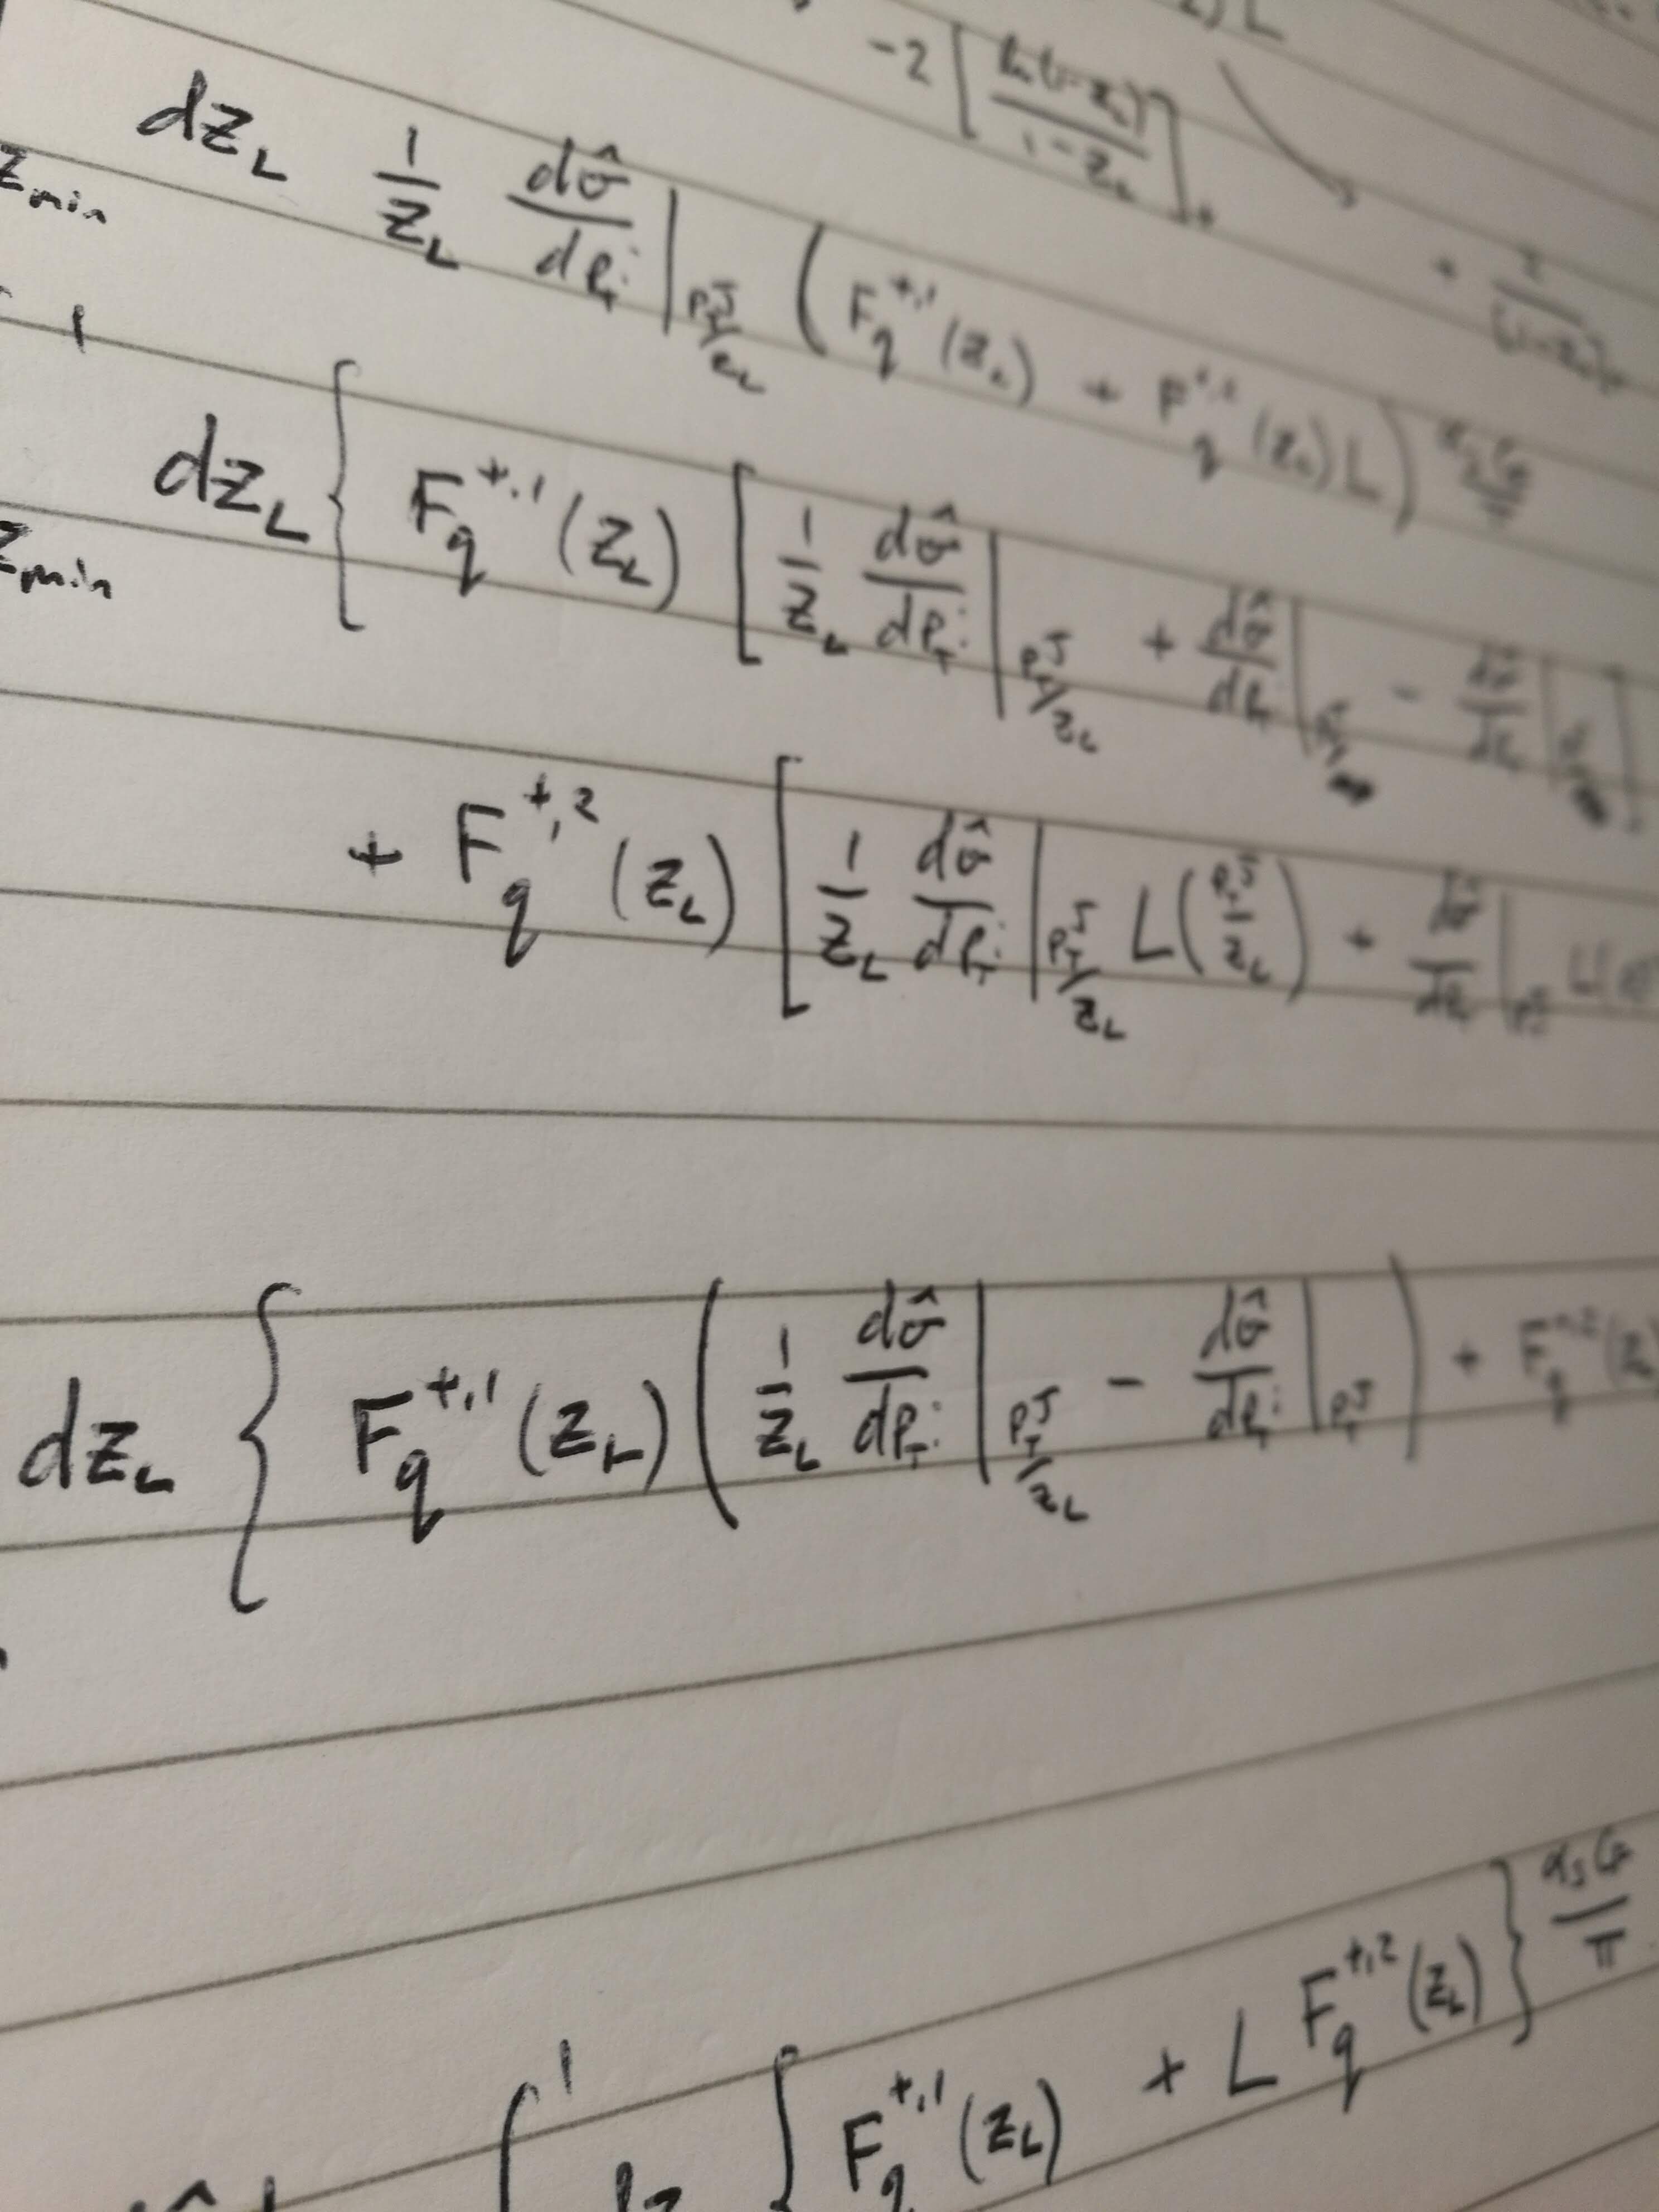 -2 [ ln(1-z_L) / 1-z_L ]_+
z_min dz_L 1/z_L dσ̂/dp_T^i |_{p_T^J/z_L} ( F_q^{+,1}(z_L) + F_q (z_L) L )
1
z_min dz_L { F_q^{+,1}(z_L) [ 1/z_L dσ̂/dp_T^i |_{p_T^J/z_L} + dσ̂/dp_T | - dσ̂/dp_T | ]
+ F_q^{+,2}(z_L) [ 1/z_L dσ̂/dp_T^i |_{p_T^J/z_L} L(p_T^J/z_L) + dσ̂/dp_T |_{p_T^J} L(
dz_L { F_q^{+,1}(z_L) ( 1/z_L dσ̂/dp_T^i |_{p_T^J/z_L} - dσ̂/dp_T^i |_{p_T^J} ) + F_q^{+,2}(z
∫^1 dz { F_q^{+,1}(z_L) + L F_q^{+,2}(z_L) } α_s C_F/π